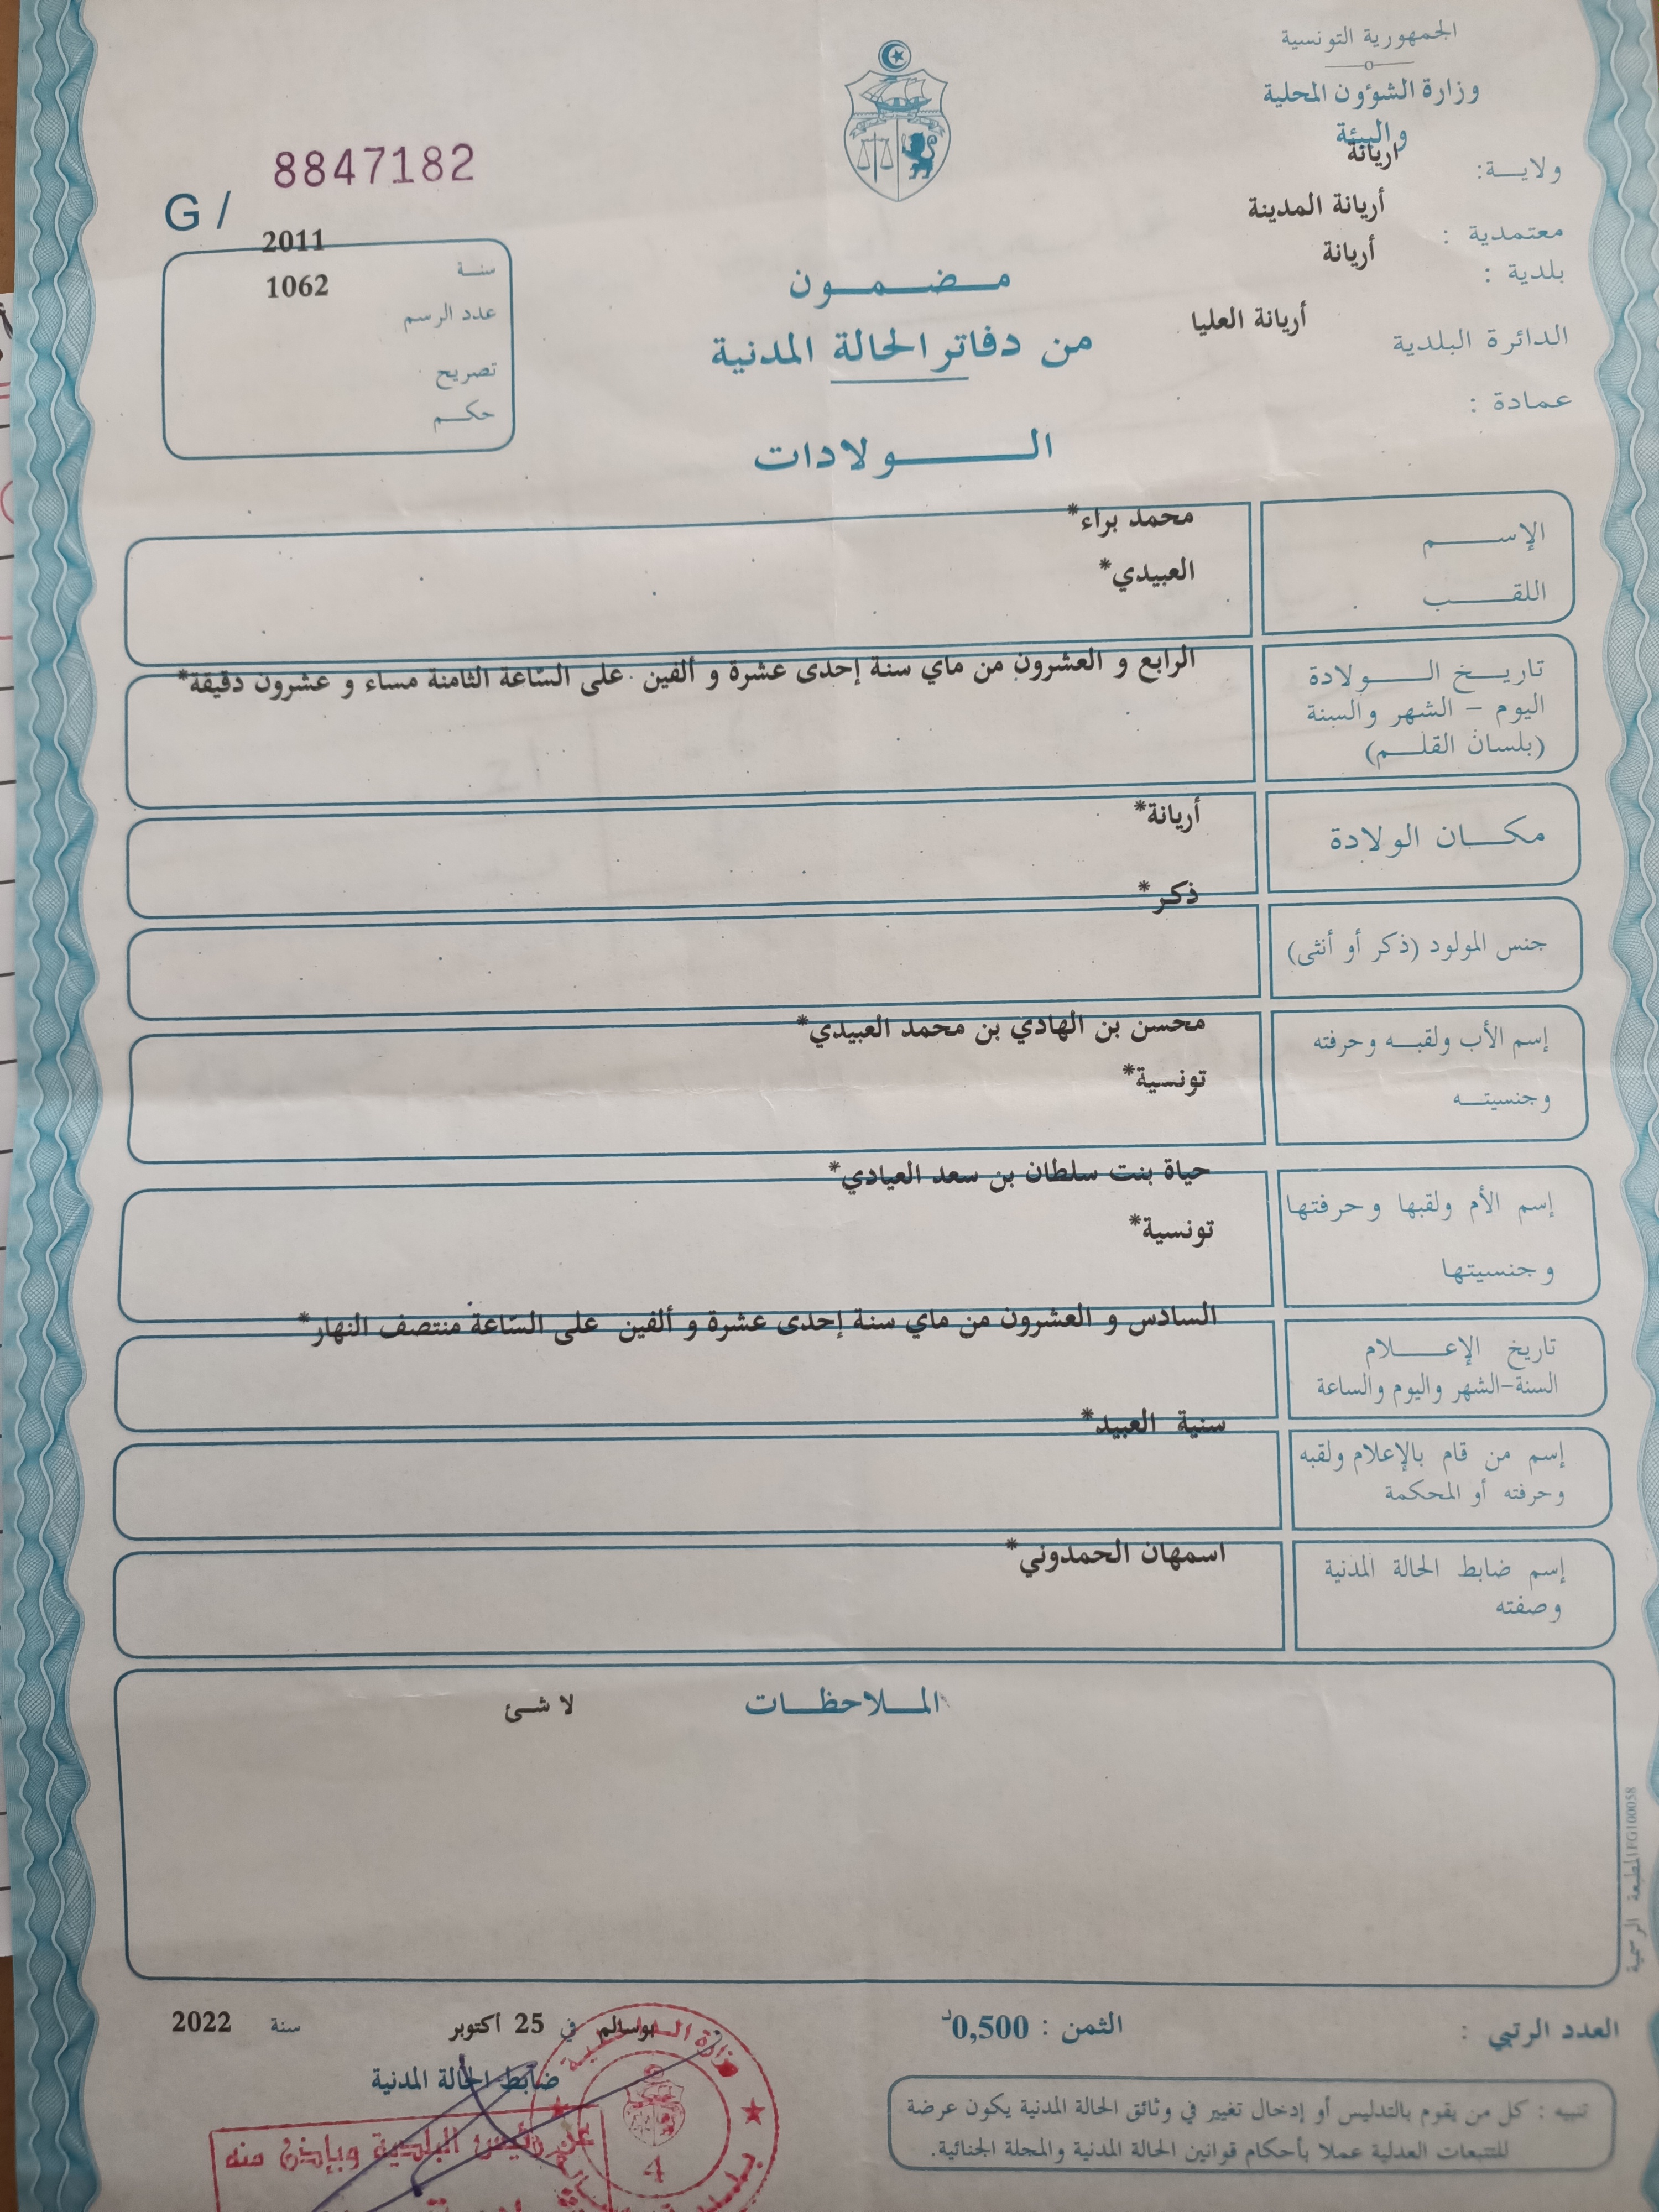 الجمهورية التونسية
وزارة الشؤون المحلية
والبيئة
ولاية: اريانة
معتمدية : أريانة المدينة
بلدية : أريانة
الدائرة البلدية أريانة العليا
عمادة :
G / 8847182
سنة 2011
عدد الرسم 1062
تصريح
حكم
مضمون
من دفاتر الحالة المدنية
الولادات
الإسم محمد براء*
اللقب العبيدي*
تاريخ الولادة الرابع و العشرون من ماي سنة إحدى عشرة و ألفين على السّاعة الثامنة مساء و عشرون دقيقة*
اليوم - الشهر والسنة
(بلسان القلم)
مكان الولادة أريانة*
جنس المولود (ذكر أو أنثى) ذكر*
إسم الأب ولقبه وحرفته محسن بن الهادي بن محمد العبيدي*
وجنسيته تونسية*
إسم الأم ولقبها وحرفتها حياة بنت سلطان بن سعد العيادي*
وجنسيتها تونسية*
تاريخ الإعلام السادس و العشرون من ماي سنة إحدى عشرة و ألفين على السّاعة منتصف النهار*
السنة-الشهر واليوم والساعة
إسم من قام بالإعلام ولقبه سنية العبيد*
وحرفته أو المحكمة
إسم ضابط الحالة المدنية اسمهان الحمدوني*
وصفته
الملاحظات لا شئ
المطبعة الرسمية IFG100058
العدد الرتبي : الثمن : 0,500د
بوسالم في 25 أكتوبر سنة 2022
ضابط الحالة المدنية
تنبيه : كل من يقوم بالتدليس أو إدخال تغيير في وثائق الحالة المدنية يكون عرضة
للتتبعات العدلية عملا بأحكام قوانين الحالة المدنية والمجلة الجنائية.
عن رئيس البلدية وبإذن منه
4